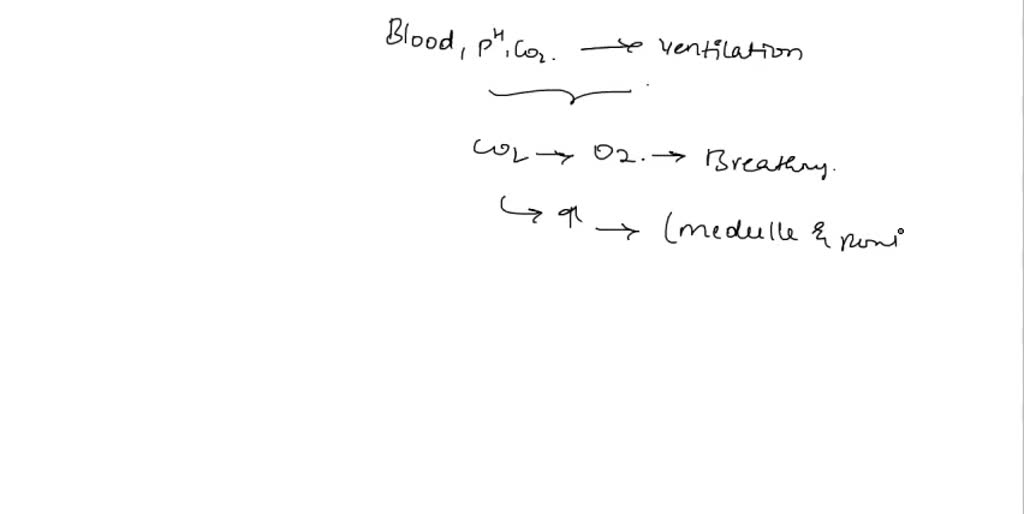 Blood, pH, CO2. → ventilation
CO2 → O2. → Breathing.
↳ ↑ → (medulle & pons